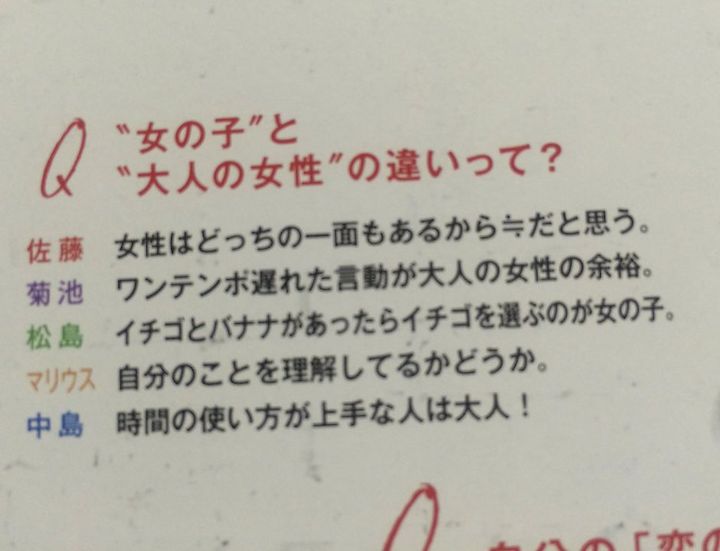 Q "女の子"と
"大人の女性"の違いって？
佐藤 女性はどっちの一面もあるから≒だと思う。
菊池 ワンテンポ遅れた言動が大人の女性の余裕。
松島 イチゴとバナナがあったらイチゴを選ぶのが女の子。
マリウス 自分のことを理解してるかどうか。
中島 時間の使い方が上手な人は大人！
Q 自分の「恋の